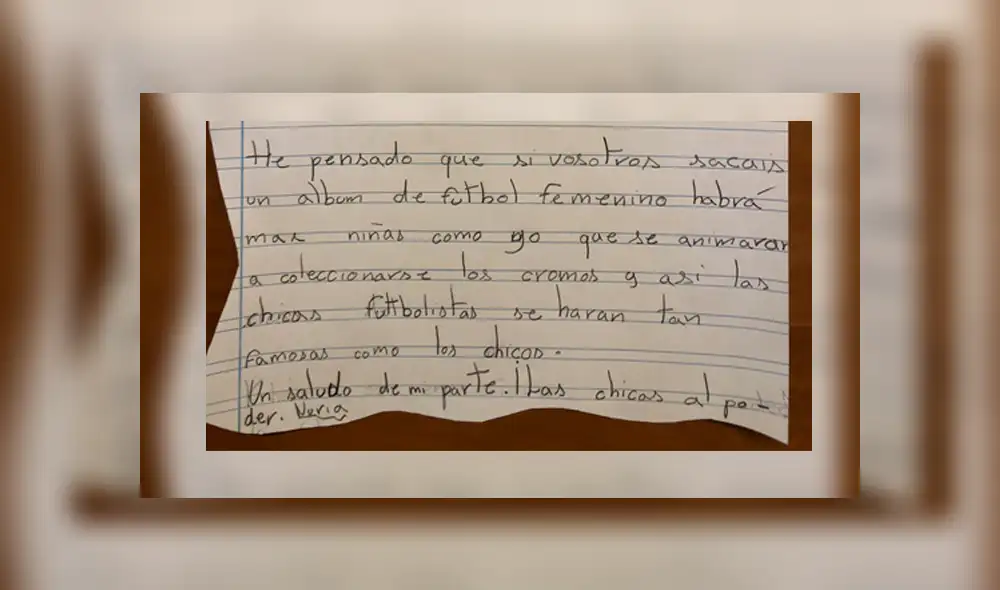 He pensado que si vosotros sacais
un álbum de fútbol femenino habrá
mas niñas como yo que se animaran
a coleccionarse los cromos y asi las
chicas futbolistas se haran tan
famosas como los chicos.
Un saludo de mi parte. ¡Las chicas al po-
der. Neria